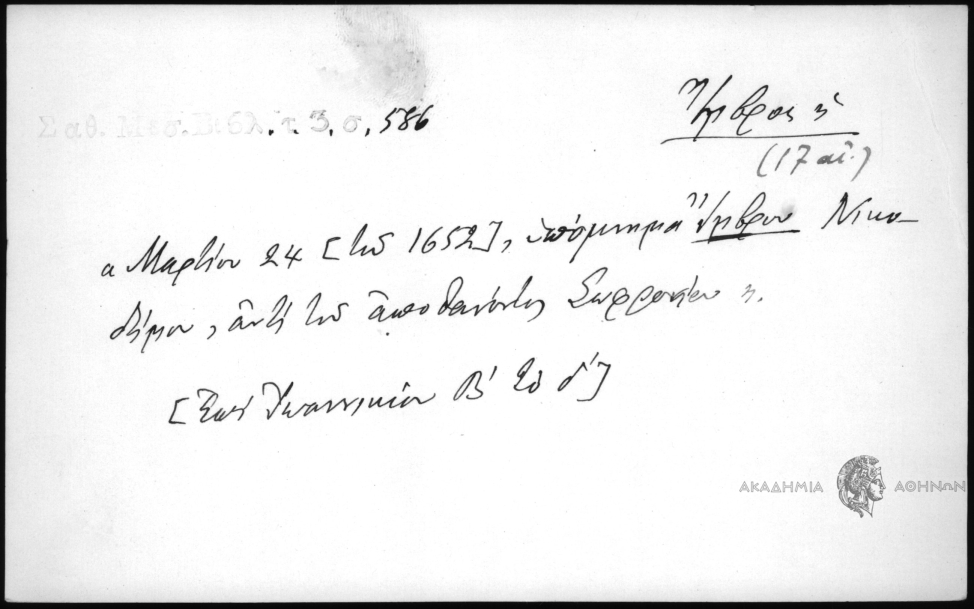 Σαθ. Μεσ. Βιβλ. τ. 3, σ. 586
Ἴμβρος ἡ
(17 αἰ.)
α Μαρτίου 24 [τοῦ 1652], ὑπόμνημα Ἴμβρου Νικο-
δήμου, ἀντὶ τοῦ ἀποθανόντος Σωφρονίου
[Ἐπὶ Ἰωαννικίου Β' τὸ δ']
ΑΚΑΔΗΜΙΑ ΑΘΗΝΩΝ